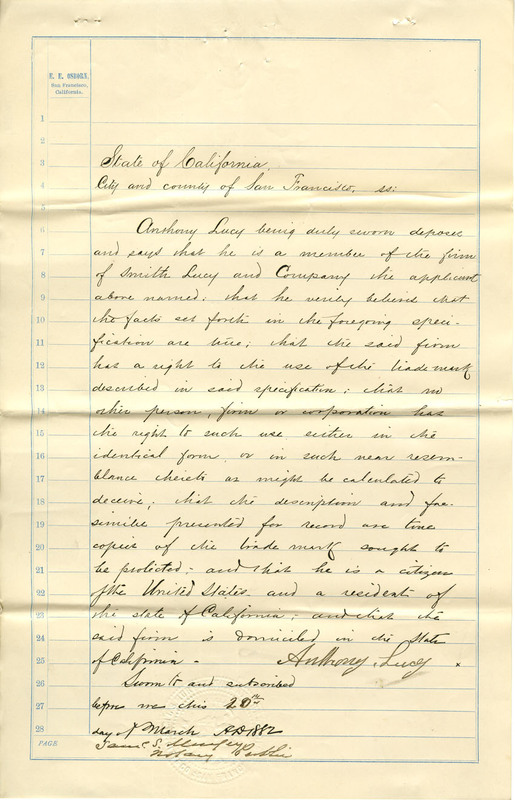 E. E. OSBORN,
San Francisco,
California.
1
2
3 State of California,
4 City and county of San Francisco, ss:
5
6 Anthony Lucy being duly sworn deposes
7 and says that he is a member of the firm
8 of Smith Lucy and Company the applicant
9 above named; that he verily believes that
10 the facts set forth in the foregoing speci-
11 fication are true; that the said firm
12 has a right to the use of the trade mark
13 described in said specification; that no
14 other person, firm or corporation has
15 the right to such use either in the
16 identical form or in such near resem-
17 blance thereto as might be calculated to
18 deceive; that the description and fac-
19 simile presented for record are true
20 copies of the trade mark sought to
21 be protected; and that he is a citizen
22 of the United States and a resident of
23 the state of California; and that the
24 said firm is domiciled in the State
25 of California - Anthony Lucy
26 Sworn to and subscribed
27 before me this 20th
28 day of March AD 1882
PAGE James S.
Notary Public